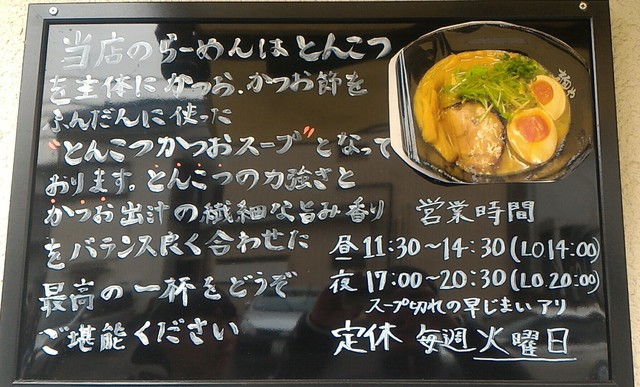 当店のらーめんはとんこつ
を主体にかつお、かつお節を
ふんだんに使った
"とんこつかつおスープ"となって
おります。とんこつの力強さと
かつお出汁の繊細な旨み香り
をバランス良く合わせた
最高の一杯をどうぞ
ご堪能ください
営業時間
昼 11:30〜14:30(LO14:00)
夜 17:00〜20:30(LO.20:00)
スープ切れの早じまいアリ
定休 毎週火曜日